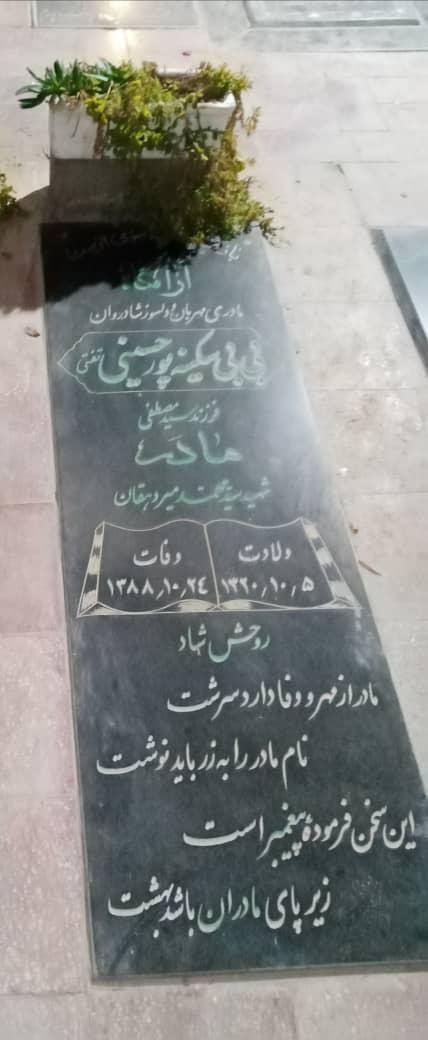 آرامگاه
مادری مهربان و دلسوز شادروان
بی بی سکینه پورحسینی تفتی
فرزند سید مصطفی
مادر
شهید سید محمد میردهقان
ولادت وفات
۱۳۲۰٫۱۰٫۵ ۱۳۸۸٫۱۰٫۲۴
روحش شاد
مادر از مهر و وفا دارد سرشت
نام مادر را به زر باید نوشت
این سخن فرمودهٔ پیغمبر است
زیر پای مادران باشد بهشت